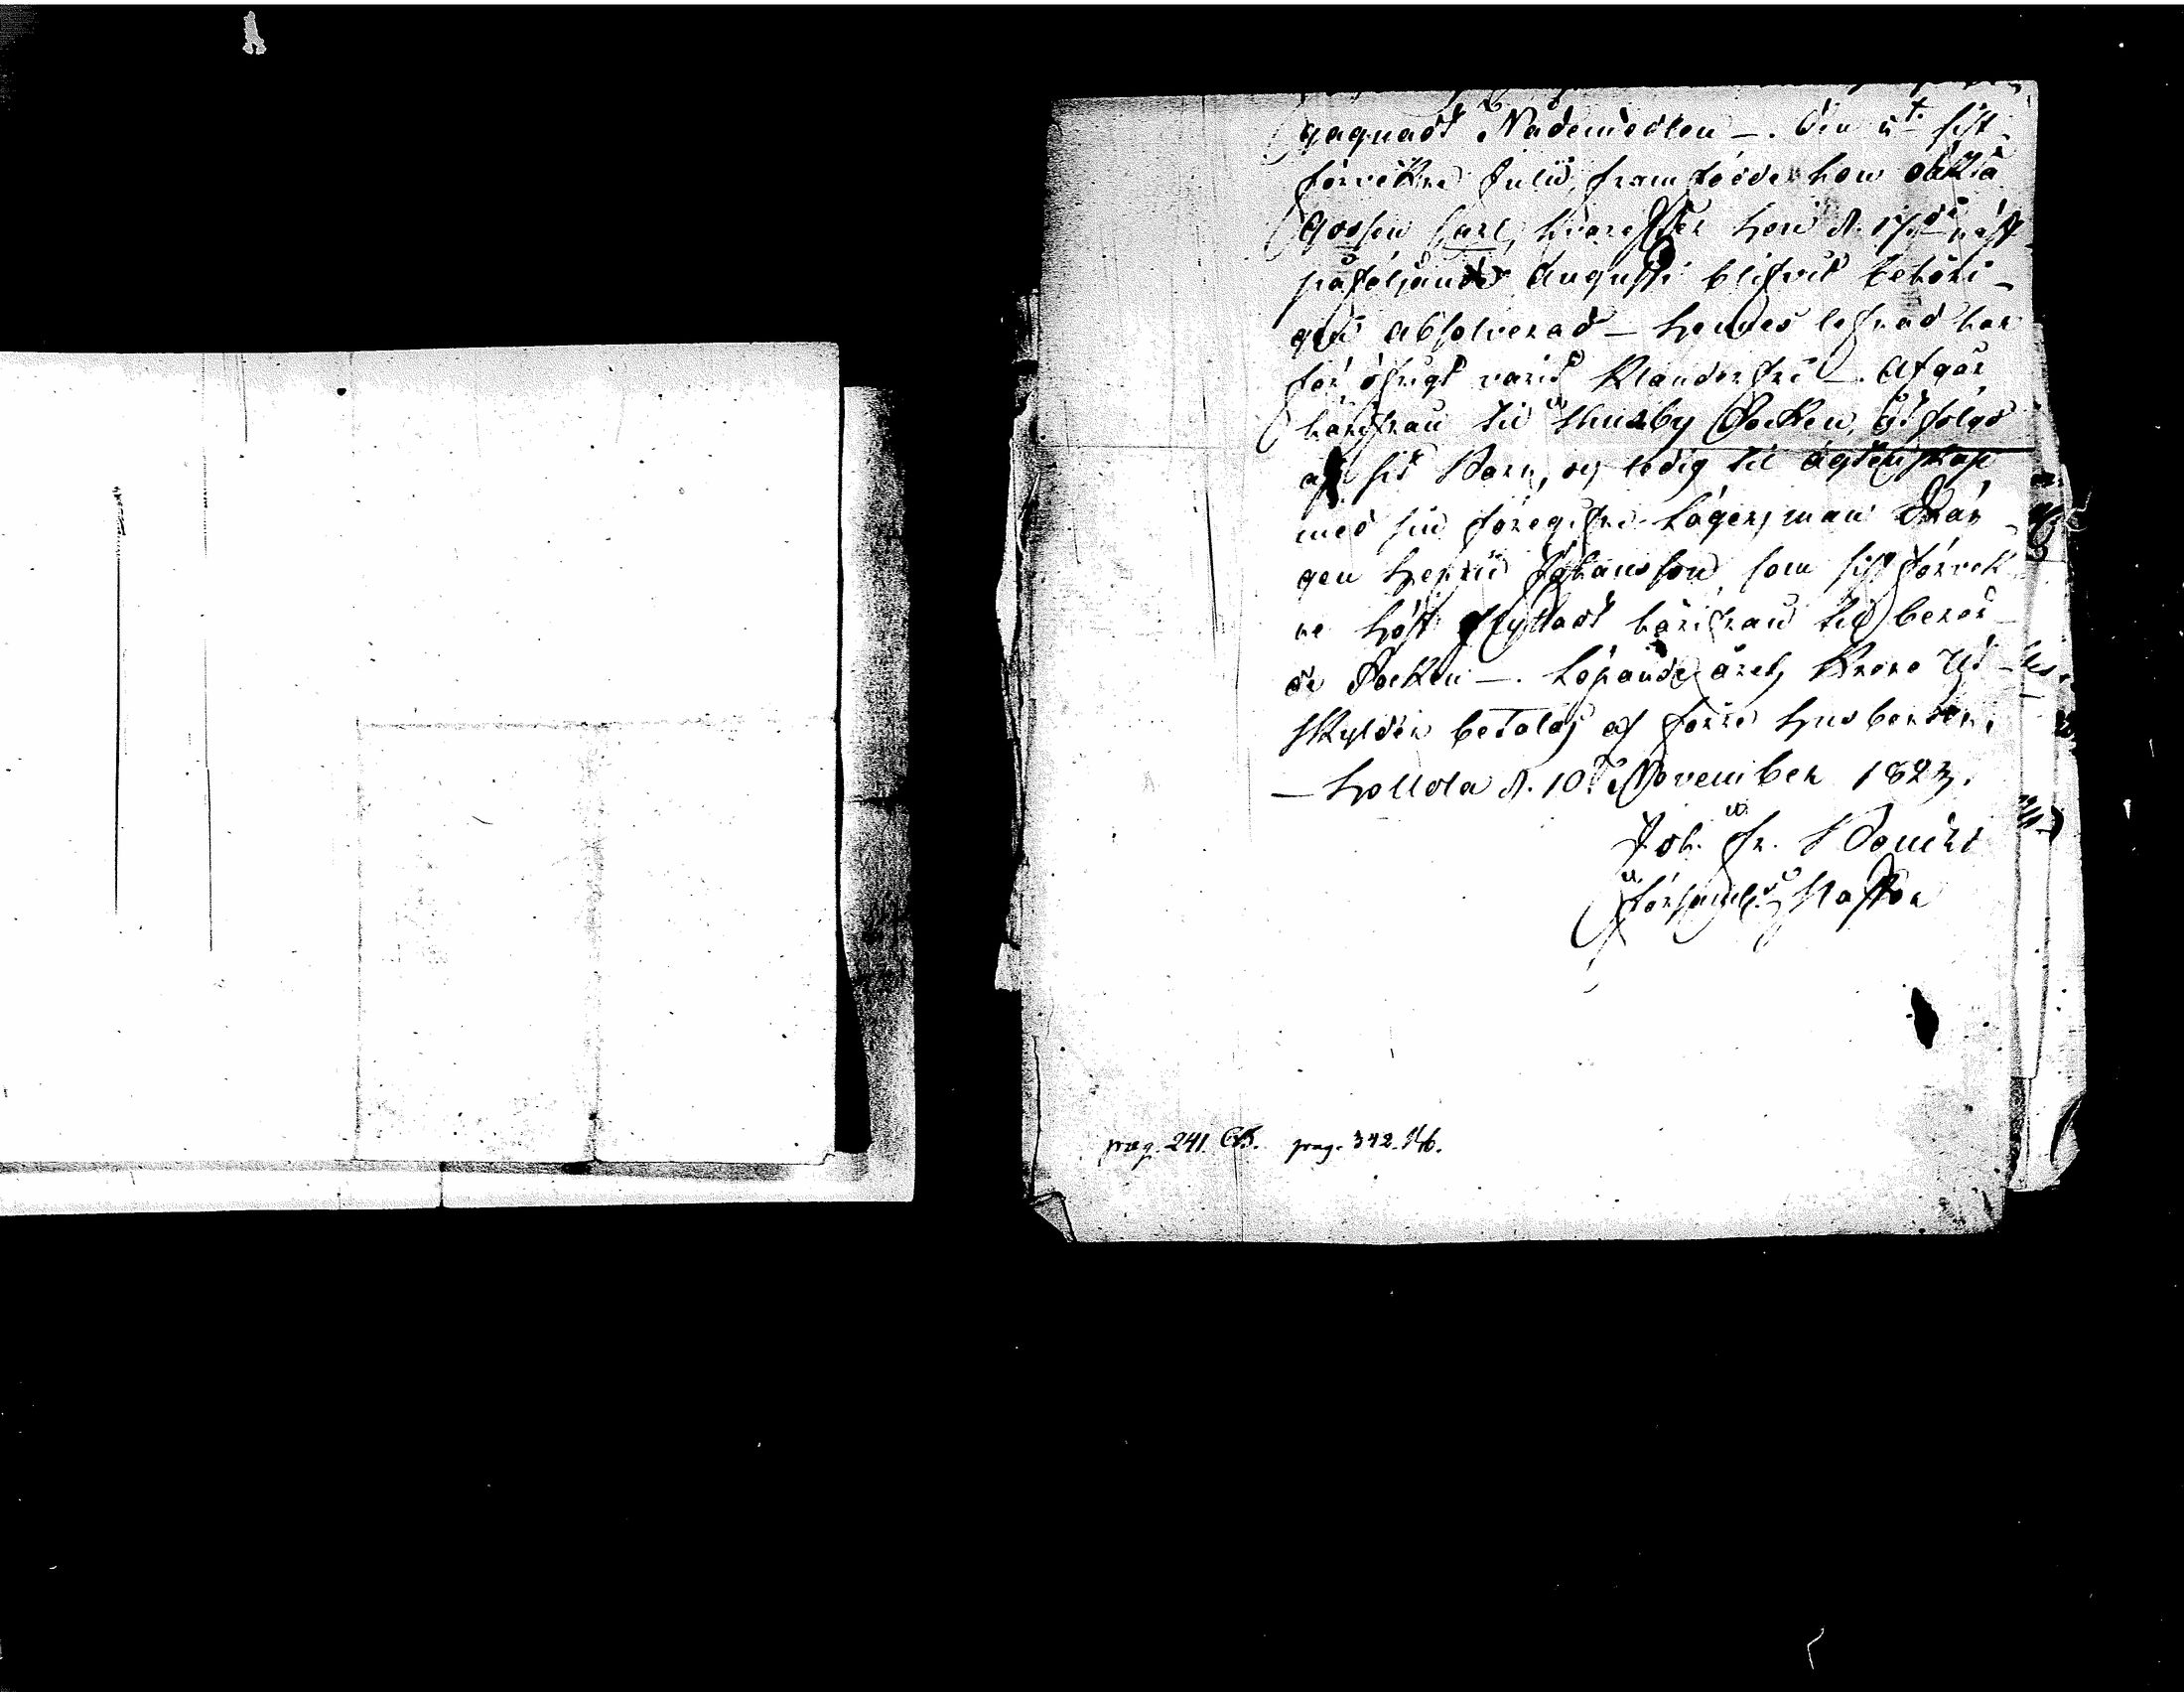 gagnadt Nademedlen —. Den sist
förvekne Julii, framfödde hon oäkta
Gossen Carl, hvarefter hon d. 17de näst
påföljande Augusti blifvit behöri-
gen absolverad — Hennes lefnad har
för öfrigt varit klanderfri —. Afgår
härifrån til Thusby Socken, åtföljd
af sit Barn, og ledig til ägtenskap
med sin föregifne Lägersman Drän-
gen Henric Johansson som sist förvek
ne höst flyttadt härifrån til berör-
de Socken —. Löpande årets Krono Ut-
skylder betalas af förre Husbonden.
— Hollola d. 10de November 1823.
Joh. Fr.
Församl. Pastor
pag. 241. CB. pag. 342.